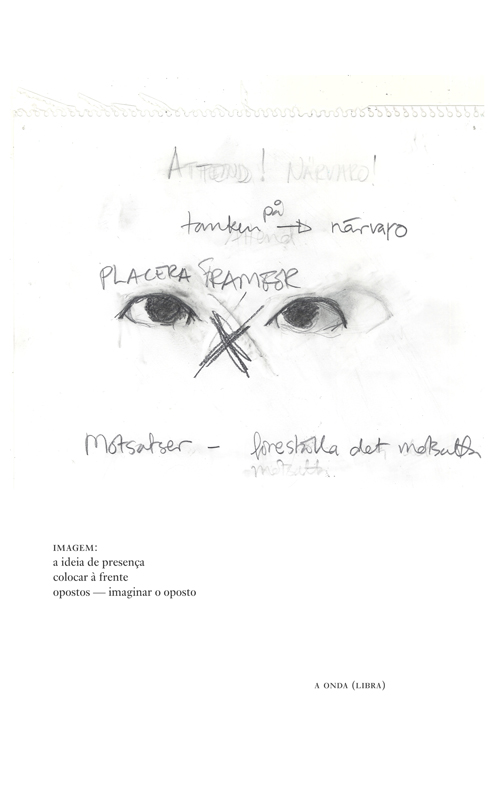 ATTEND! NÄRVARO!
tanken på → närvaro
Attend
PLACERA FRAMFÖR
Motsatser – föreställa det motsatta
motsatta
IMAGEM:
a ideia de presença
colocar à frente
opostos — imaginar o oposto
A ONDA (LIBRA)